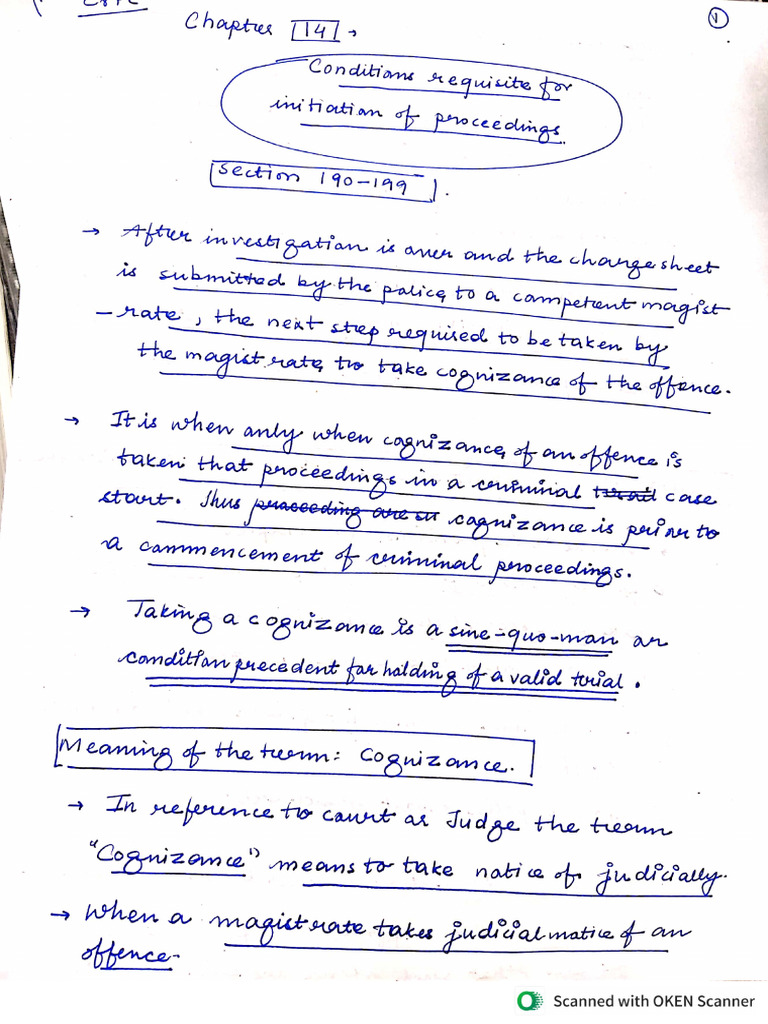 CrPC
①
Chapter 14 →
Conditions requisite for
initiation of proceedings.
Section 190-199.
→ After investigation is over and the chargesheet
is submitted by the police, to a competent magist
-rate, the next step required to be taken by
the magistrate, to take cognizance of the offence.
→ It is when only when cognizance, of an offence is
taken that proceedings in a criminal trail case
start. Thus proceeding are in cognizance is prior to
a commencement of criminal proceedings.
→ Taking a cognizance is a sine-quo-man or
condition precedent for holding of a valid trial.
Meaning of the term: Cognizance.
→ In reference to court or Judge the term
"Cognizance" means to take notice of judicially.
→ When a magistrate takes judicial notice of an
offence.
Scanned with OKEN Scanner